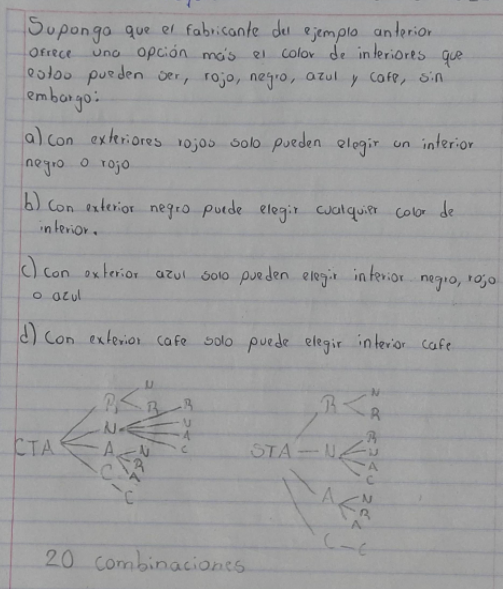 Suponga que el fabricante del ejemplo anterior
ofrece una opción más el color de interiores que
estos pueden ser, rojo, negro, azul y cafe, sin
embargo:
a) con exteriores rojos solo pueden elegir un interior
negro o rojo
b) con exterior negro puede elegir cualquier color de
interior.
c) con exterior azul solo pueden elegir interior negro, rojo
o azul
d) con exterior cafe solo puede elegir interior cafe
CTA
R
N
R
N
R
N
A
C
A
N
R
A
C
C
STA
R
N
R
N
R
N
A
C
A
N
R
A
C
C
20 combinaciones